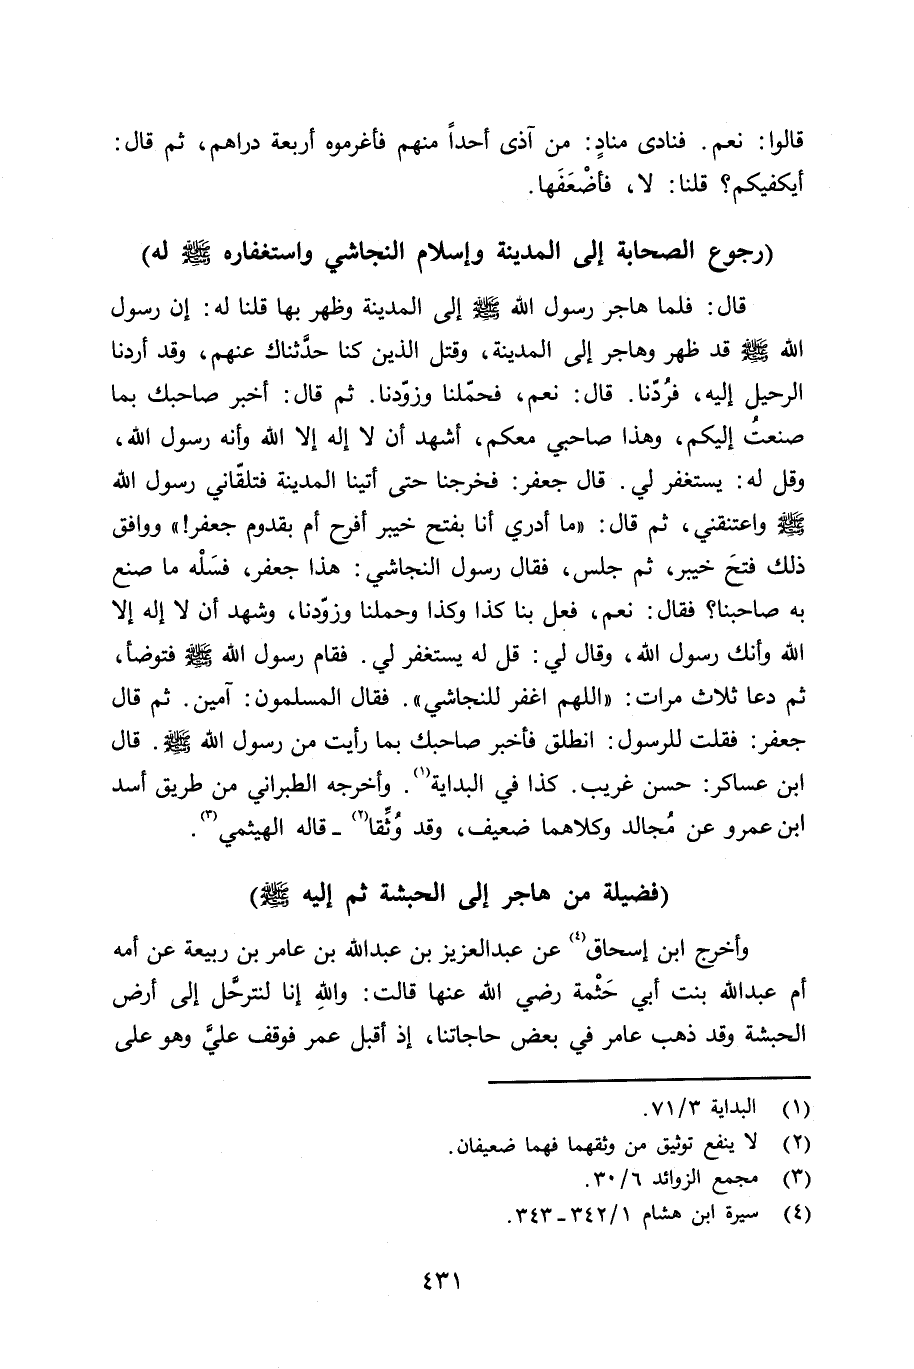 قالوا: نعم. فنادى منادٍ: من آذى أحداً منهم فأغرموه أربعة دراهم، ثم قال:
أيكفيكم؟ قلنا: لا، فأضْعَفَها.
(رجوع الصحابة إلى المدينة وإسلام النجاشي واستغفاره ﷺ له)
قال: فلما هاجر رسول الله ﷺ إلى المدينة وظهر بها قلنا له: إن رسول
الله ﷺ قد ظهر وهاجر إلى المدينة، وقتل الذين كنا حدَّثناك عنهم، وقد أردنا
الرحيل إليه، فرُدّنا. قال: نعم، فحمّلنا وزوّدنا. ثم قال: أخبر صاحبك بما
صنعتُ إليكم، وهذا صاحبي معكم، أشهد أن لا إله إلا الله وأنه رسول الله،
وقل له: يستغفر لي. قال جعفر: فخرجنا حتى أتينا المدينة فتلقّاني رسول الله
ﷺ واعتنقني، ثم قال: «ما أدري أنا بفتح خيبر أفرح أم بقدوم جعفر!» ووافق
ذلك فتحَ خيبر، ثم جلس، فقال رسول النجاشي: هذا جعفر، فسَلْه ما صنع
به صاحبنا؟ فقال: نعم، فعل بنا كذا وكذا وحملنا وزوّدنا، وشهد أن لا إله إلا
الله وأنك رسول الله، وقال لي: قل له يستغفر لي. فقام رسول الله ﷺ فتوضأ،
ثم دعا ثلاث مرات: «اللهم اغفر للنجاشي». فقال المسلمون: آمين. ثم قال
جعفر: فقلت للرسول: انطلق فأخبر صاحبك بما رأيت من رسول الله ﷺ. قال
ابن عساكر: حسن غريب. كذا في البداية(١). وأخرجه الطبراني من طريق أسد
ابن عمرو عن مُجالد وكلاهما ضعيف، وقد وُثِّقا(٢) - قاله الهيثمي(٣).
(فضيلة من هاجر إلى الحبشة ثم إليه ﷺ)
وأخرج ابن إسحاق(٤) عن عبدالعزيز بن عبدالله بن عامر بن ربيعة عن أمه
أم عبدالله بنت أبي حَثْمة رضي الله عنها قالت: واللهِ إنا لنترحَّل إلى أرض
الحبشة وقد ذهب عامر في بعض حاجاتنا، إذ أقبل عمر فوقف عليَّ وهو على
(١) البداية ٧١/٣.
(٢) لا ينفع توثيق من وثقهما فهما ضعيفان.
(٣) مجمع الزوائد ٣٠/٦.
(٤) سيرة ابن هشام ٣٤٢/١-٣٤٣.
٤٣١